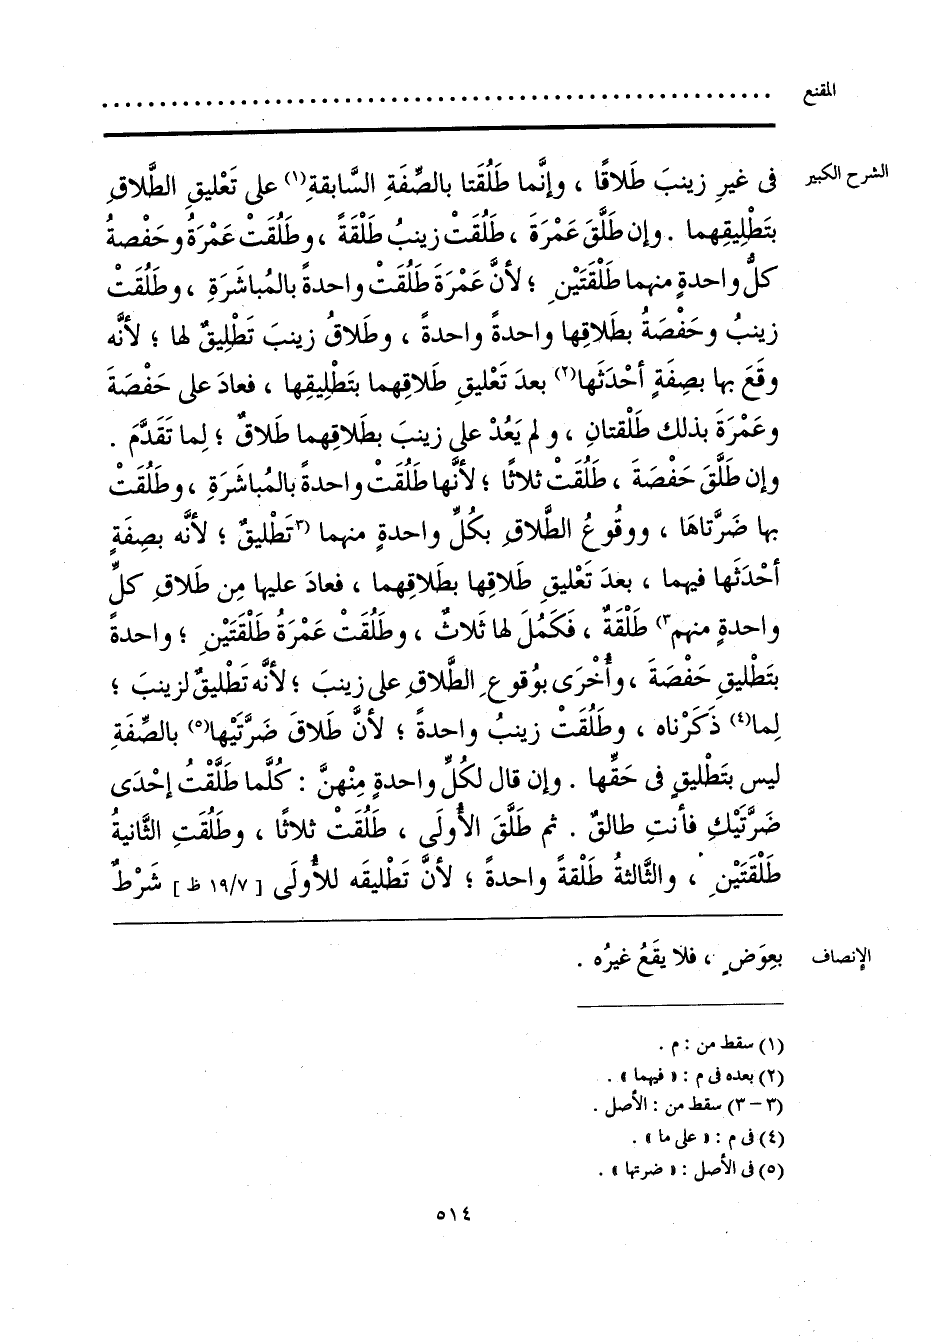 المقنع ............................................................
الشرح الكبير فى غيرِ زينبَ طَلاقًا ، وإنَّما طَلُقَتا بالصِّفَةِ السَّابقةِ(١) على تَعْليقِ الطَّلاقِ
بتَطْلِيقِهما . وإن طَلَّقَ عَمْرَةَ ، طَلُقَتْ زينبُ طَلْقَةً ، وطَلُقَتْ عَمْرَةُ وحَفْصةُ
كلُّ واحدةٍ منهما طَلْقَتَيْنِ ؛ لأنَّ عَمْرَةَ طَلُقَتْ واحدةً بالمُباشَرَةِ ، وطَلُقَتْ
زينبُ وحَفْصَةُ بطَلاقِها واحدةً واحدةً ، وطَلاقُ زينبَ تَطْلِيقٌ لها ؛ لأنَّه
وقَعَ بها بصِفَةٍ أحْدَثَها(٢) بعدَ تَعْليقِ طَلاقِهما بتَطْلِيقِها ، فعادَ على حَفْصَةَ
وعَمْرَةَ بذلك طَلْقتانِ ، ولم يَعُدْ على زينبَ بطَلاقِهما طَلاقٌ ؛ لِما تَقَدَّمَ .
وإن طَلَّقَ حَفْصَةَ ، طَلُقَتْ ثلاثًا ؛ لأنَّها طَلُقَتْ واحدةً بالمُباشَرَةِ ، وطَلُقَتْ
بها ضَرَّتاهَا ، ووقُوعُ الطَّلاقِ بكُلِّ واحدةٍ منهما (٣تَطْلِيقٌ ؛ لأنَّه بصِفَةٍ
أحْدَثَها فيهما ، بعدَ تَعْليقِ طَلاقِها بطَلاقِهما ، فعادَ عليها مِن طَلاقِ كلِّ
واحدةٍ منهم٣) طَلْقَةٌ ، فَكَمُلَ لها ثَلاثٌ ، وطَلُقَتْ عَمْرَةُ طَلْقَتَيْنِ ؛ واحدةً
بتَطْليقِ حَفْصَةَ ، وأُخْرَى بوُقوعِ الطَّلاقِ على زينبَ ؛ لأنَّه تَطْليقٌ لزينبَ ؛
لِما(٤) ذَكَرْناه ، وطَلُقَتْ زينبُ واحدةً ؛ لأنَّ طَلاقَ ضَرَّتَيْها(٥) بالصِّفَةِ
ليس بتَطْليقٍ فى حَقِّها . وإن قال لكُلِّ واحدةٍ مِنْهنَّ : كُلَّما طَلَّقْتُ إحْدَى
ضَرَّتَيْكِ فأنتِ طالقٌ . ثم طَلَّقَ الأُولَى ، طَلُقَتْ ثلاثًا ، وطَلُقَتِ الثَّانيةُ
طَلْقَتَيْنِ ، والثَّالثةُ طَلْقةً واحدةً ؛ لأنَّ تَطْليقَه للأُولَى [ ١٩/٧ ظ ] شَرْطٌ
الإنصاف بعِوَضٍ ، فلا يقَعُ غيرُه .
(١) سقط من : م .
(٢) بعده فى م : « فيهما » .
(٣ – ٣) سقط من : الأصل .
(٤) فى م : « على ما » .
(٥) فى الأصل : « ضرتها » .
٥١٤